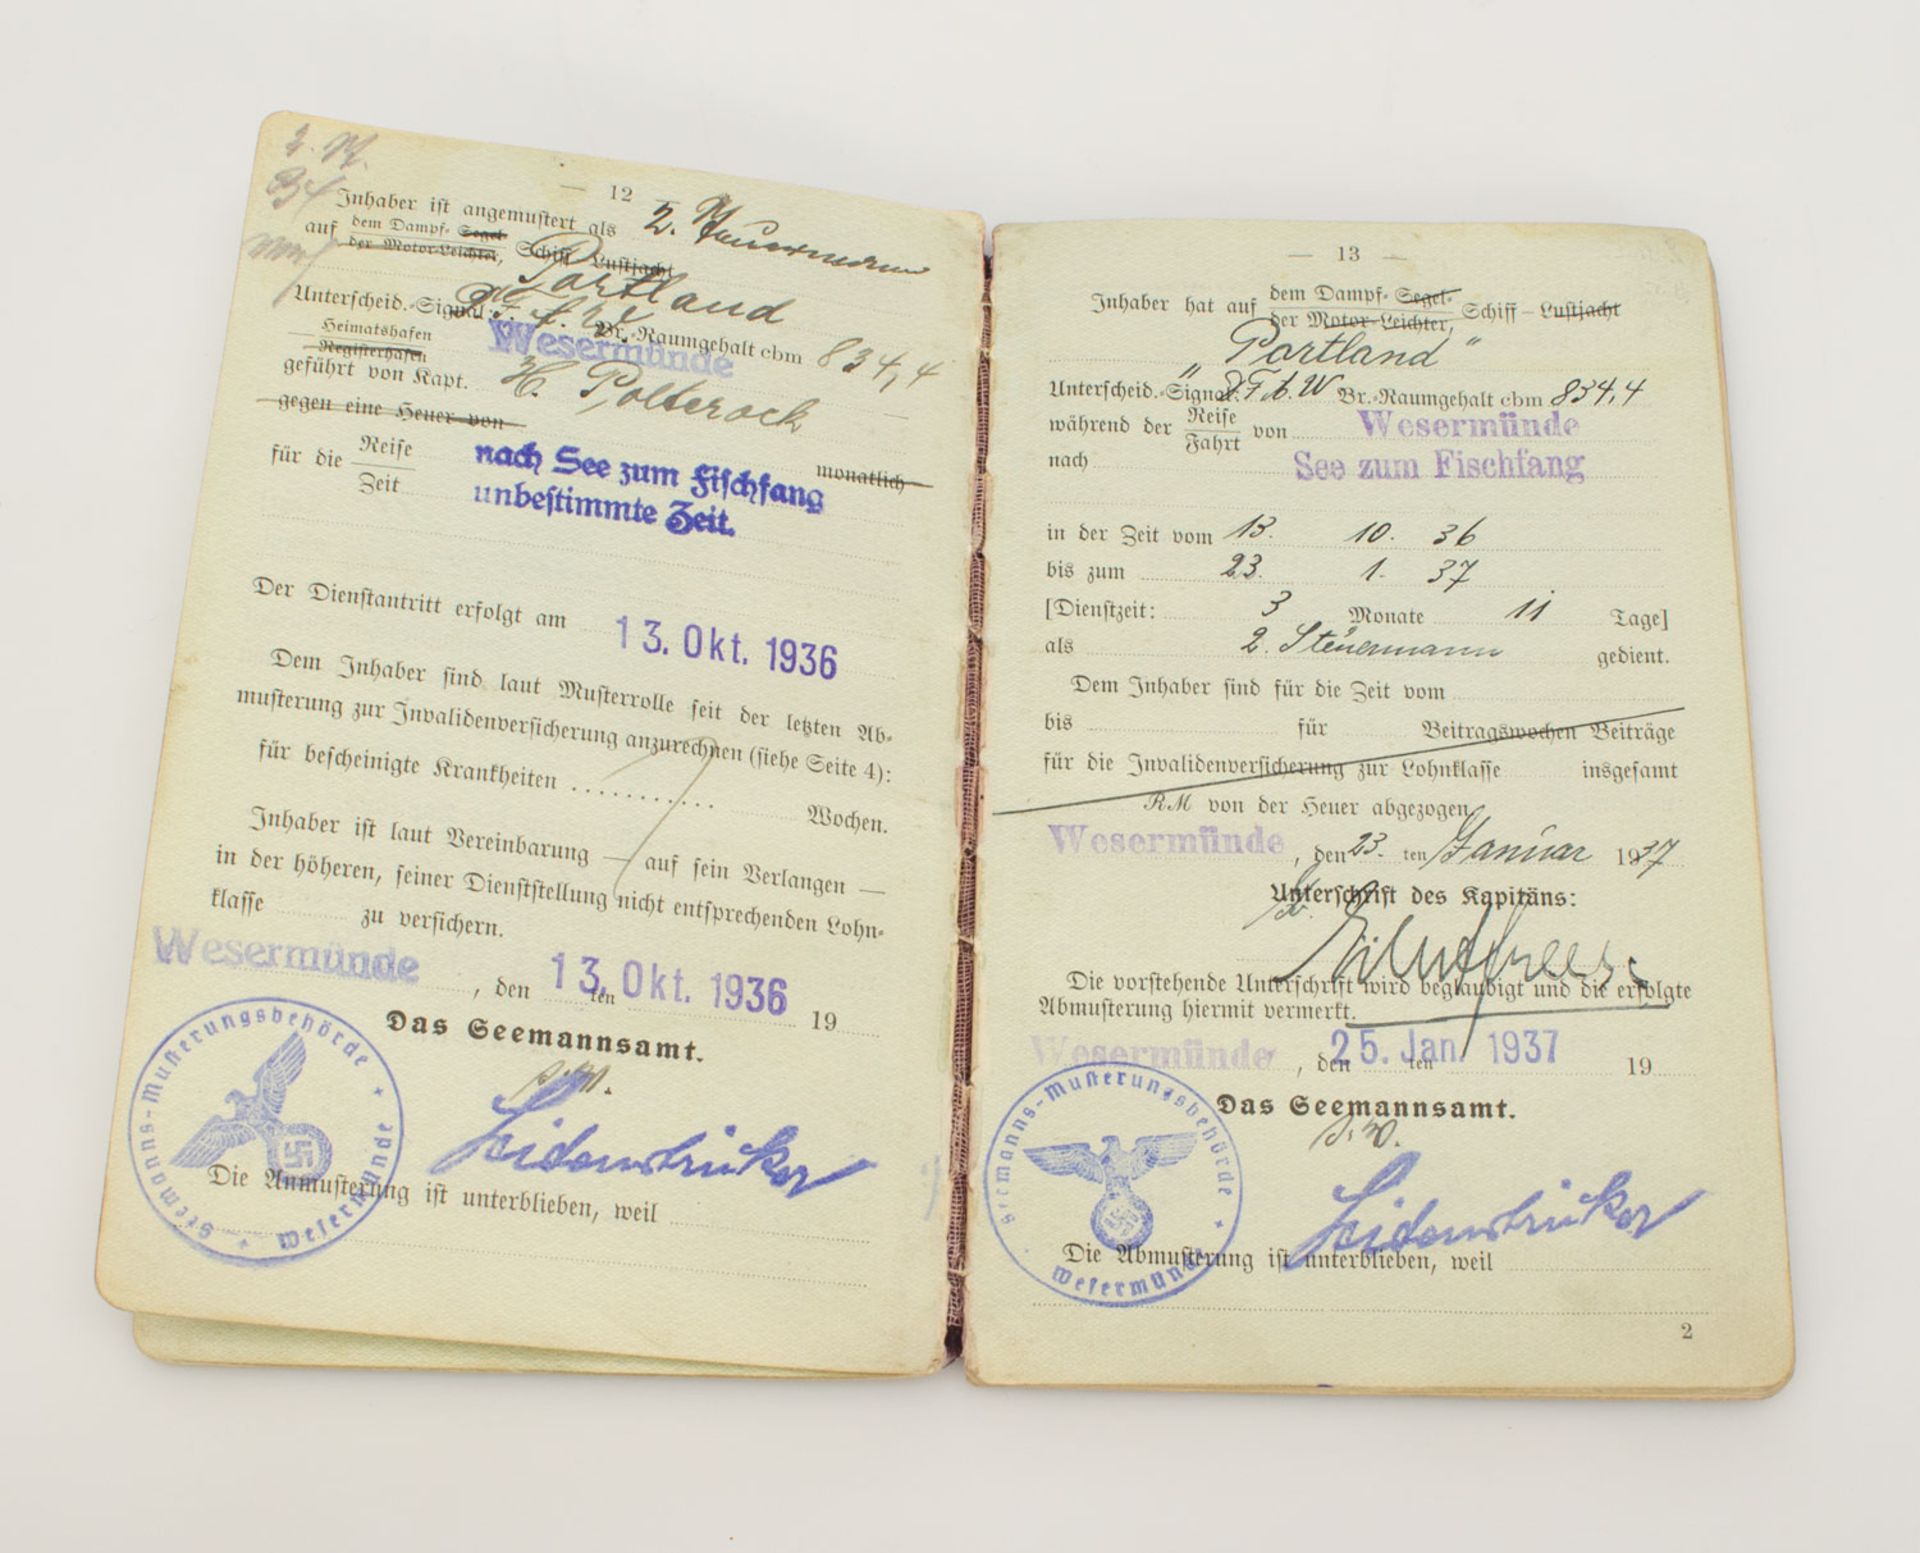 2. M.
— 12 —
Inhaber ist angemustert als 2. Steuermann
auf dem Dampf- Segel-
der Motor-Leichter, Schiff Lustjacht
Portland
Unterscheid.-Signal: Br.-Raumgehalt cbm 834,4
Heimatshafen
Registerhafen
Wesermünde
geführt von Kapt. H. Polterock
gegen eine Heuer von
monatlich
für die Reise
Zeit
nach See zum Fischfang
unbestimmte Zeit.
Der Dienstantritt erfolgt am 13. Okt. 1936
Dem Inhaber sind laut Musterrolle seit der letzten Ab-
musterung zur Invalidenversicherung anzurechnen (siehe Seite 4):
für bescheinigte Krankheiten ........... Wochen.
Inhaber ist laut Vereinbarung — auf sein Verlangen —
in der höheren, seiner Dienststellung nicht entsprechenden Lohn-
klasse zu versichern.
Wesermünde, den 13. Okt. 1936 ten 19
Das Seemannsamt.
Seemanns-Musterungsbehörde
Wesermünde
Die Anmusterung ist unterblieben, weil
— 13 —
Inhaber hat auf dem Dampf- Segel-
der Motor-Leichter, Schiff – Lustjacht
„Portland"
Unterscheid.-Signal: Br.-Raumgehalt cbm 834,4
während der Reise
Fahrt von Wesermünde
nach See zum Fischfang
in der Zeit vom 13. 10. 36
bis zum 23. 1. 37
[Dienstzeit: 3 Monate 11 Tage]
als 2. Steuermann gedient.
Dem Inhaber sind für die Zeit vom
bis für Beitragswochen Beiträge
für die Invalidenversicherung zur Lohnklasse insgesamt
RM von der Heuer abgezogen
Wesermünde, den 23. ten Januar 1937
Unterschrift des Kapitäns:
Die vorstehende Unterschrift wird beglaubigt und die erfolgte
Abmusterung hiermit vermerkt.
Wesermünde, den 25. Jan. 1937 ten 19
Das Seemannsamt.
Seemanns-Musterungsbehörde
Wesermünde
Die Abmusterung ist unterblieben, weil
2